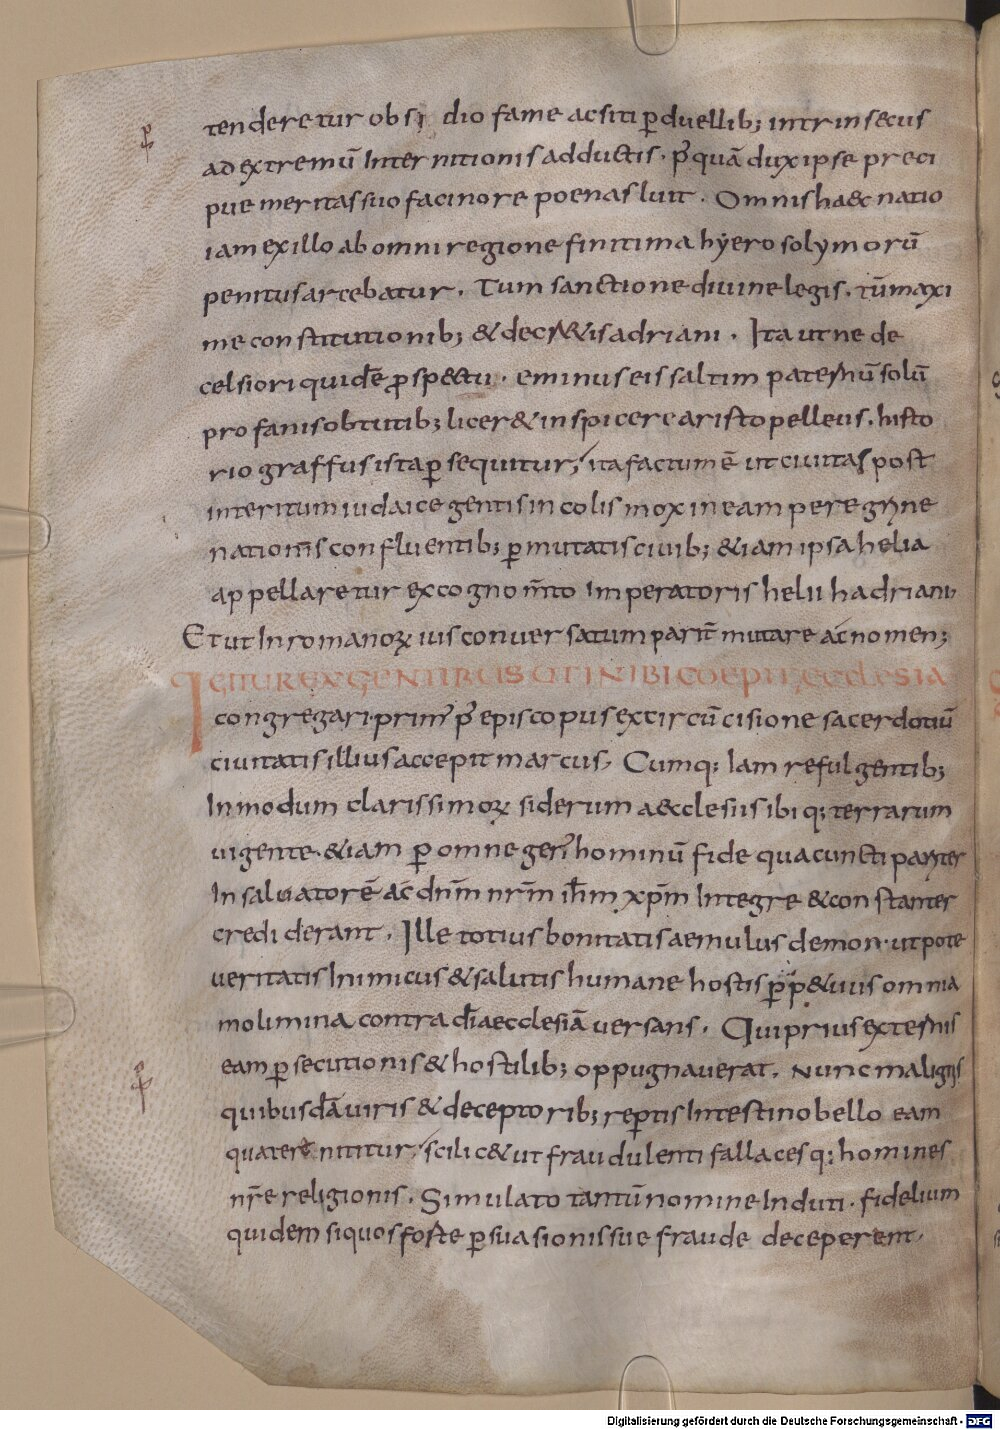 tenderetur obsi dio fame ac siti ꝑduellib; intrinsecus
ad extremū Internitionis adductis. p̄quā dux ipse preci
pue meritas suo facinore poenas luit. Omnis haec natio
iam ex illo ab omni regione finitima hẏerosolymorū
penitus arcebatur. Tum sanctione diuine legis. tū maxi
me constitutionib; & decr&is adriani. Ita ut ne de
celsiori quidē ꝓsp&tu. eminus eis saltim paternū solū
profanis obtutib; licer& inspicere aristopelleus. histo
riograffus ista ꝑsequitur; ita factum ē ut ciuitas post
interitum iudaice gentis incolis mox in eam peregrine
nationis confluentib; ꝑmutatis ciuib; & iam ipsa helia
appellaretur ex cognom̄to Imperatoris helii hadriani
Et ut In romanoꝝ ius conuersatum parit̄ mutare ac nomen;
IGITUR EX GENTIBUS UT INIBI COEPIT ECCLESIA
congregari. prim' p' episcopus ex circūcisione sacerdotiū
ciuitatis illius accepit marcus. Cumq; Iam refulgentib;
In modum clarissimoꝝ siderum aecclesiis ibiq; terrarum
uigente. & iam ꝑ omne gen' hominū fide qua cuncti pariter
In saluatorē ac dn̄m nr̄m ih̄m xp̄m Integre & constanter
crediderant. Ille totius bonitatis aemulus demon. utpote
ueritatis Inimicus & salutis humane hostis ꝑp&uus omnia
molimina contra dī aecclesiā uersans. Qui prius externis
eam ꝑsecutionis & hostilib; oppugnauerat. Nunc malignis
quibusdā uiris & deceptorib; reꝑtis Intestino bello eam
quatere nititur; scilic& ut fraudulenti fallacesq; homines
nr̄e religionis. Simulato tantū nomine Induti. fidelium
quidem si quos foste ꝑsuasionis sue fraude deceperent.
Digitalisierung gefördert durch die Deutsche Forschungsgemeinschaft - DFG